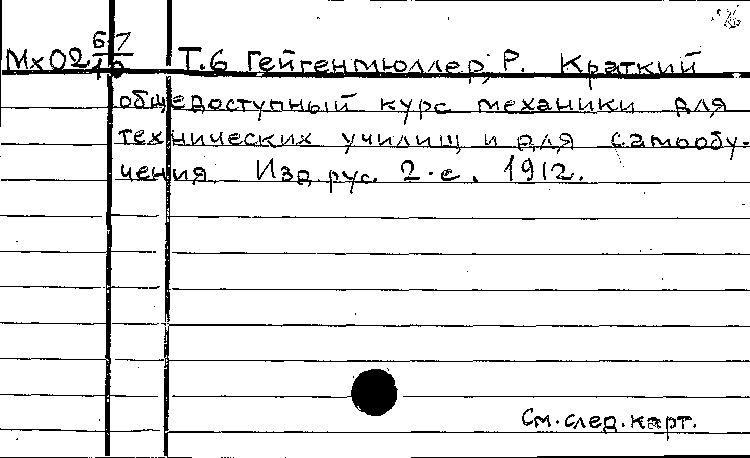 Мх02 67/10 Т.6 Гейгенмюллер, Р. Краткий
общедоступный курс механики для
технических училищ и для самообу-
чения. Изд. рус. 2-е. 1912.
См. след. карт.